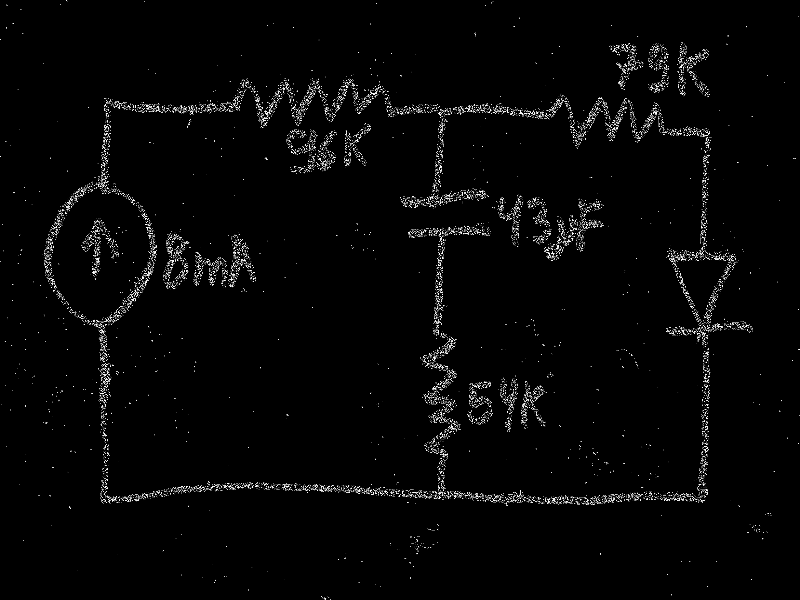 79K
96K
43µF
8mA
54K